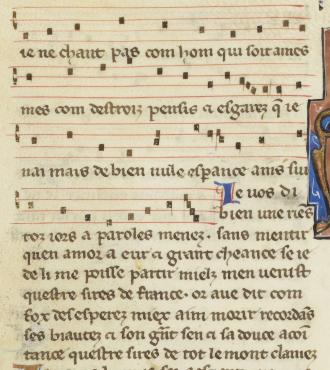 ie ne chant pas com hom qui soit ames
mes com destroiz pensis a esgarez q̃ ie
nai mais de bien nule esp̱ance ains sui
Je uos di
bien une riẽs
toz iors a paroles menez . sans mentir
quen amor a eur a grant cheance se ie
de li me poisse partir mielz men uenist
questre sires de france . or aue dit com
fox desesperez miex aim morir recordãs
ses biautez a son gñt sen a sa douce acoī
tance questre sires de tot le mont clamez